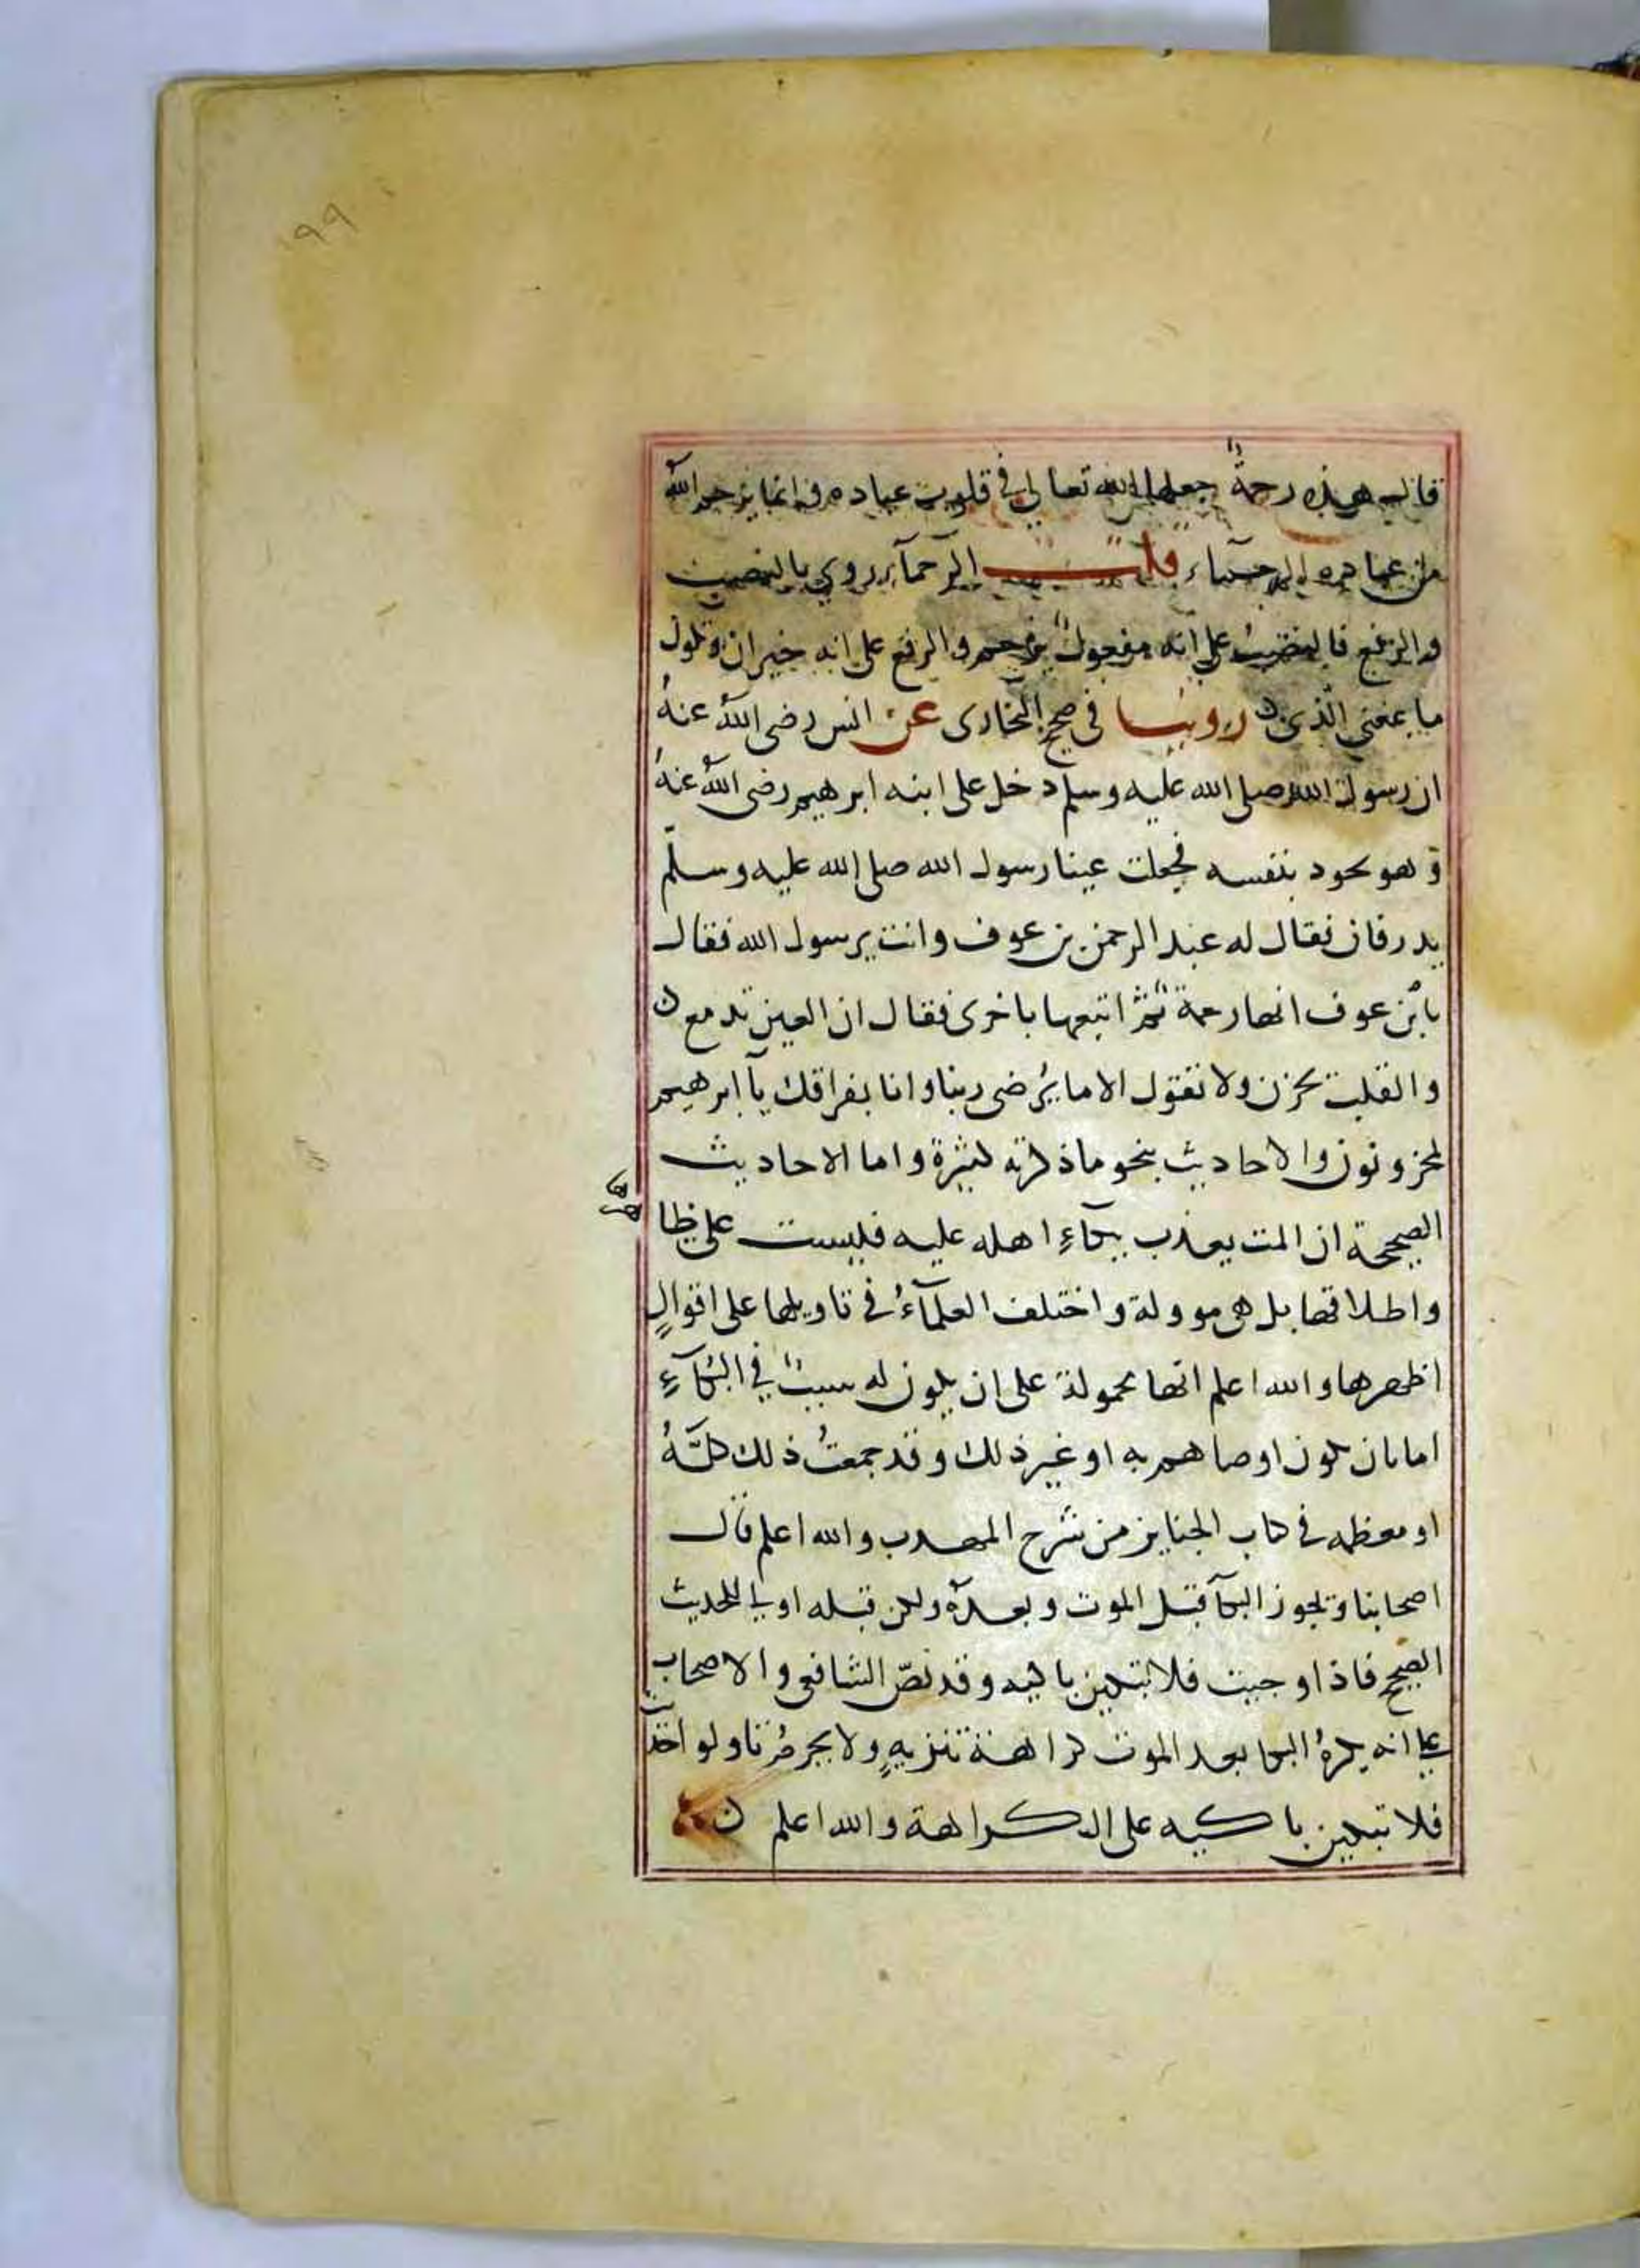 ١٩٩
قال هذه رحمةٌ جعلها الله تعالى في قلوب عباده وانما يرحم الله
من عباده الرحماء قلت الرحمآء روي بالنصب
والرفع فالنصبُ على انه مفعولُ يرحم والرفع على انه خبر ان وتكون
ما بمعني الّذي ن روينا في صحيح البخاري عن انس رضي اللهُ عنهُ
ان رسول الله صلى الله عليه وسلم دخل على ابنه ابرهيم رضي اللهُ عنهُ
وهو يجود بنفسه فجعلت عينا رسول الله صلى الله عليه وسلّم
يدرفان فقال له عبد الرحمن بن عوف وانت يرسول الله فقال
يابْن عوف انها رحمة ثمّ اتبعها باخرى فقال ان العين تدمع ن
والقلب يحزن ولا نقول الا ما يُرضي ربنا وانا بفراقك يآ ابرهيم
لمحزونون والاحاديث بنحو ما ذكرته كثيرة واما الاحاديث
الصحيحة ان الميت يعذب ببكآءِ اهله عليه فليست على ظا
هرها
واطلاقها بل هي موولة واختلف العلمآءُ في تاويلها على اقوالٍ
اظهرها والله اعلم انها محمولة على ان يكون له سببٌ في البُكآءِ
اما بان يكون اوصاهم به او غير ذلك وقد جمعتُ ذلك كلّهُ
او معظمه في كتاب الجنايز من شرح المهذب والله اعلم قال
اصحابنا ويجوز البكآ قبل الموت وبعده ولكن قبله اولي للحديث
الصحيح فاذا وجبت فلا تبكين باكيه وقد نصّ الشافعي والاصحاب
على انه يكرهُ البكا بعد الموت كراهة تنزيهٍ ولا يحرمُ وتاولو احديث
فلا تبكين باكيه على الكراهة والله اعلم ن